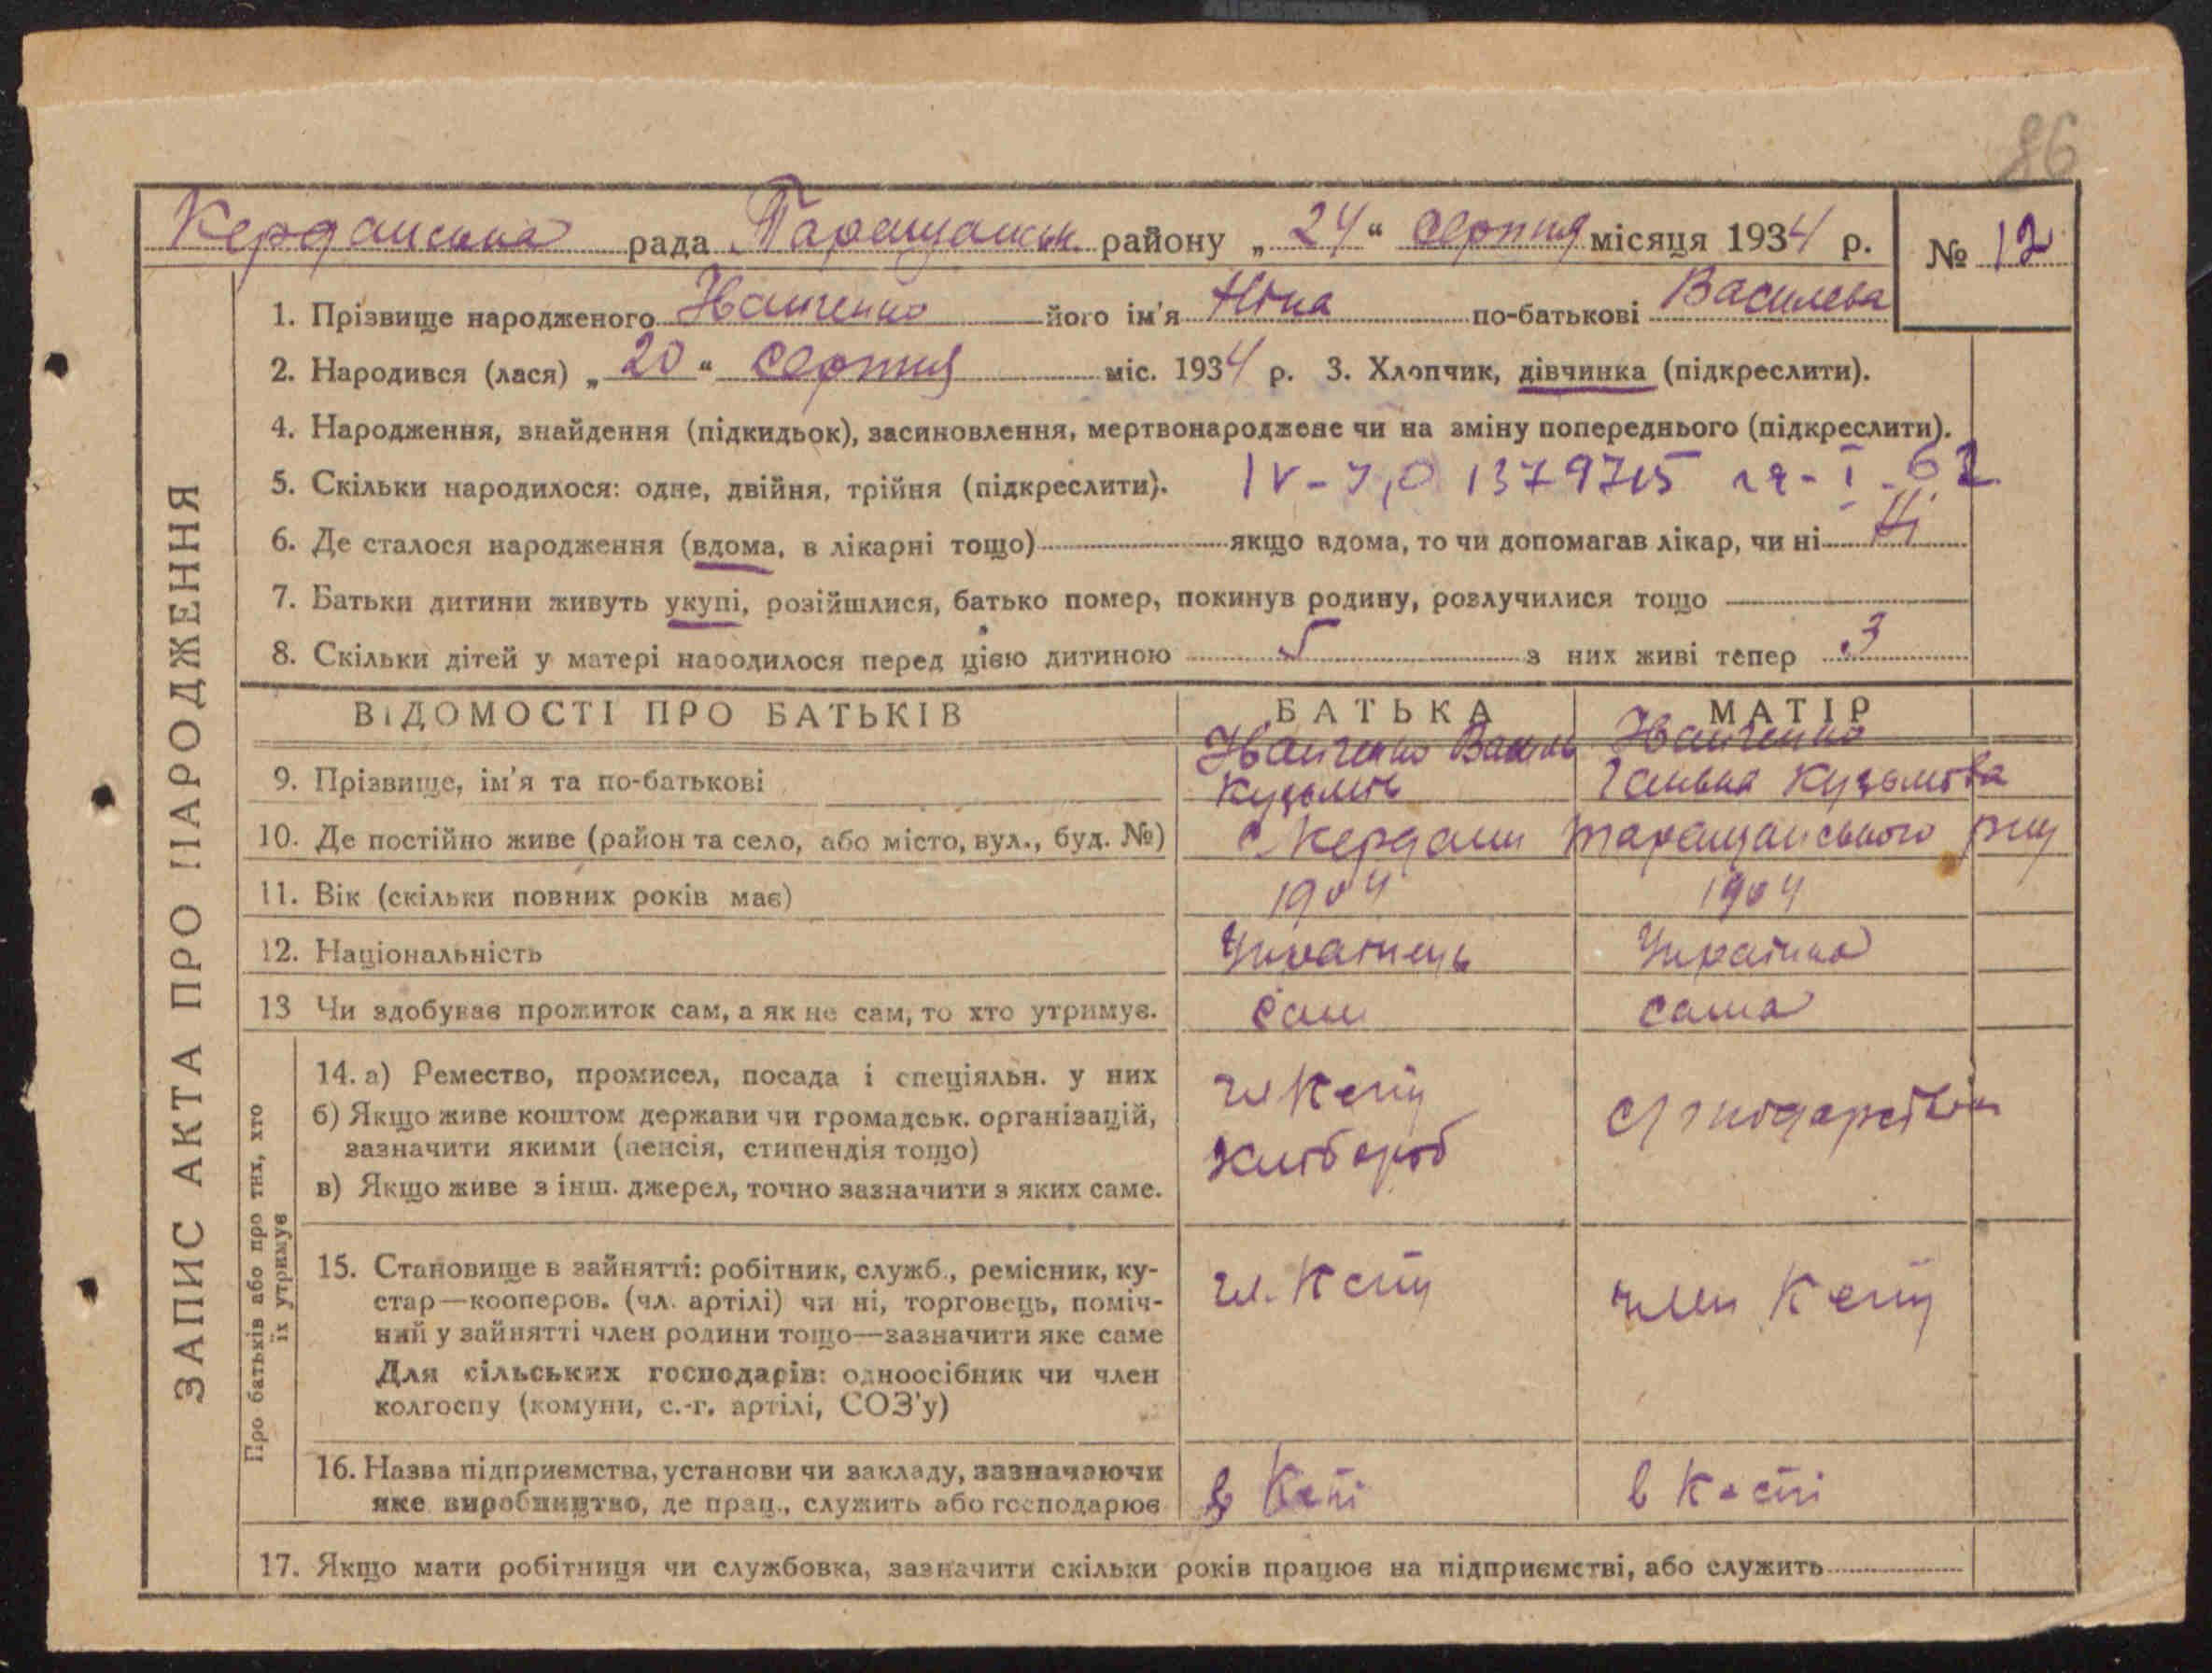 86
Керданська рада Таращанськ району „ 24 “ серпня місяця 1934 р. № 12
ЗАПИС АКТА ПРО НАРОДЖЕННЯ
1. Прізвище народженого Іванченко його ім'я Ніна по-батькові Василева
2. Народився (лася) „ 20 “ серпня міс. 1934 р. 3. Хлопчик, дівчинка (підкреслити).
4. Народження, знайдення (підкидьок), засиновлення, мертвонароджене чи на зміну попереднього (підкреслити).
5. Скільки народилося: одне, двійня, трійня (підкреслити). IV - 1379715 - I - 62
6. Де сталося народження (вдома, в лікарні тощо) якщо вдома, то чи допомагав лікар, чи ні Ні
7. Батьки дитини живуть укупі, розійшлися, батько помер, покинув родину, розлучилися тощо
8. Скільки дітей у матері народилося перед цією дитиною 5 з них живі тепер 3
ВІДОМОСТІ ПРО БАТЬКІВ БАТЬКА МАТІР
9. Прізвище, ім'я та по-батькові Іванченко Василь Кузьмів Іванченко Ганна Кузьмова
10. Де постійно живе (район та село, або місто, вул., буд. №) с Кердани Таращанського р-ну
11. Вік (скільки повних років має) 1904 1904
12. Національність Українець Українка
13 Чи здобував прожиток сам, а як не сам, то хто утримує. сам сама
Про батьків або про тих, хто їх утримує
14. а) Ремество, промисел, посада і спеціяльн. у них чл
б) Якщо живе коштом держави чи громадськ. організацій, хлібороб
зазначити якими (пенсія, стипендія тощо)
в) Якщо живе з інш. джерел, точно зазначити з яких саме.
15. Становище в зайнятті: робітник, служб., ремісник, ку- чл. член
стар—кооперов. (чл. артілі) чи ні, торговець, поміч-
ний у зайнятті член родини тощо—зазначити яке саме
Для сільських господарів: одноосібник чи член
колгоспу (комуни, с.-г. артілі, СОЗ'у)
16. Назва підприємства, установи чи закладу, зазначаючи в в
яке виробництво, де прац., служить або господарює
17. Якщо мати робітниця чи службовка, зазначити скільки років працює на підприємстві, або служить